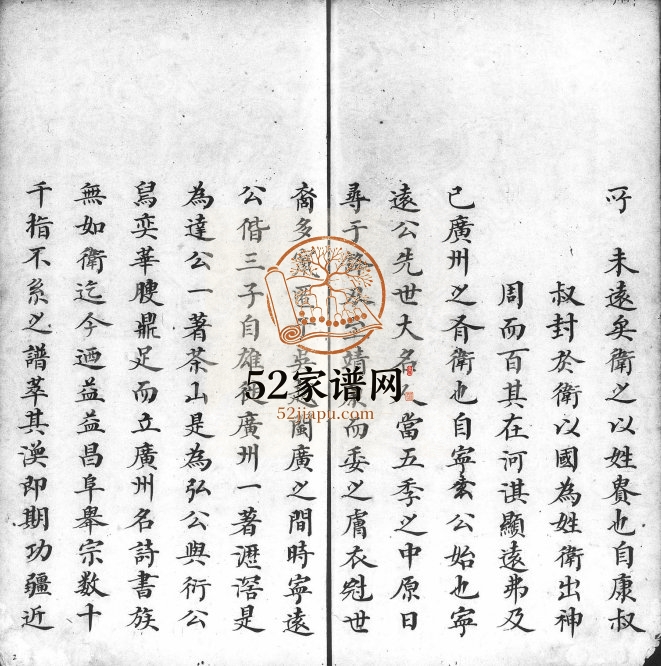 所 未遠矣衛之以姓貴也自康叔
叔封於衛以國為姓衛出神
周而百其在河淇顯遠弗及
已廣州之有衛也自寧玄公始也寧
遠公先世大名人當五季之中原日
尋于 靖康而委之膚衣冠世
裔多 匿 閩廣之間時寧遠
公偕三子自雄 廣州一著瀝滘是
為達公一著茶山是為弘公與衍公
舄奕華腴鼎足而立廣州名詩書族
無如衛迄今迺益益昌阜舉宗数十
千指不糸之譜萃其渙即期功疆近
52家谱网
52jiapu.com